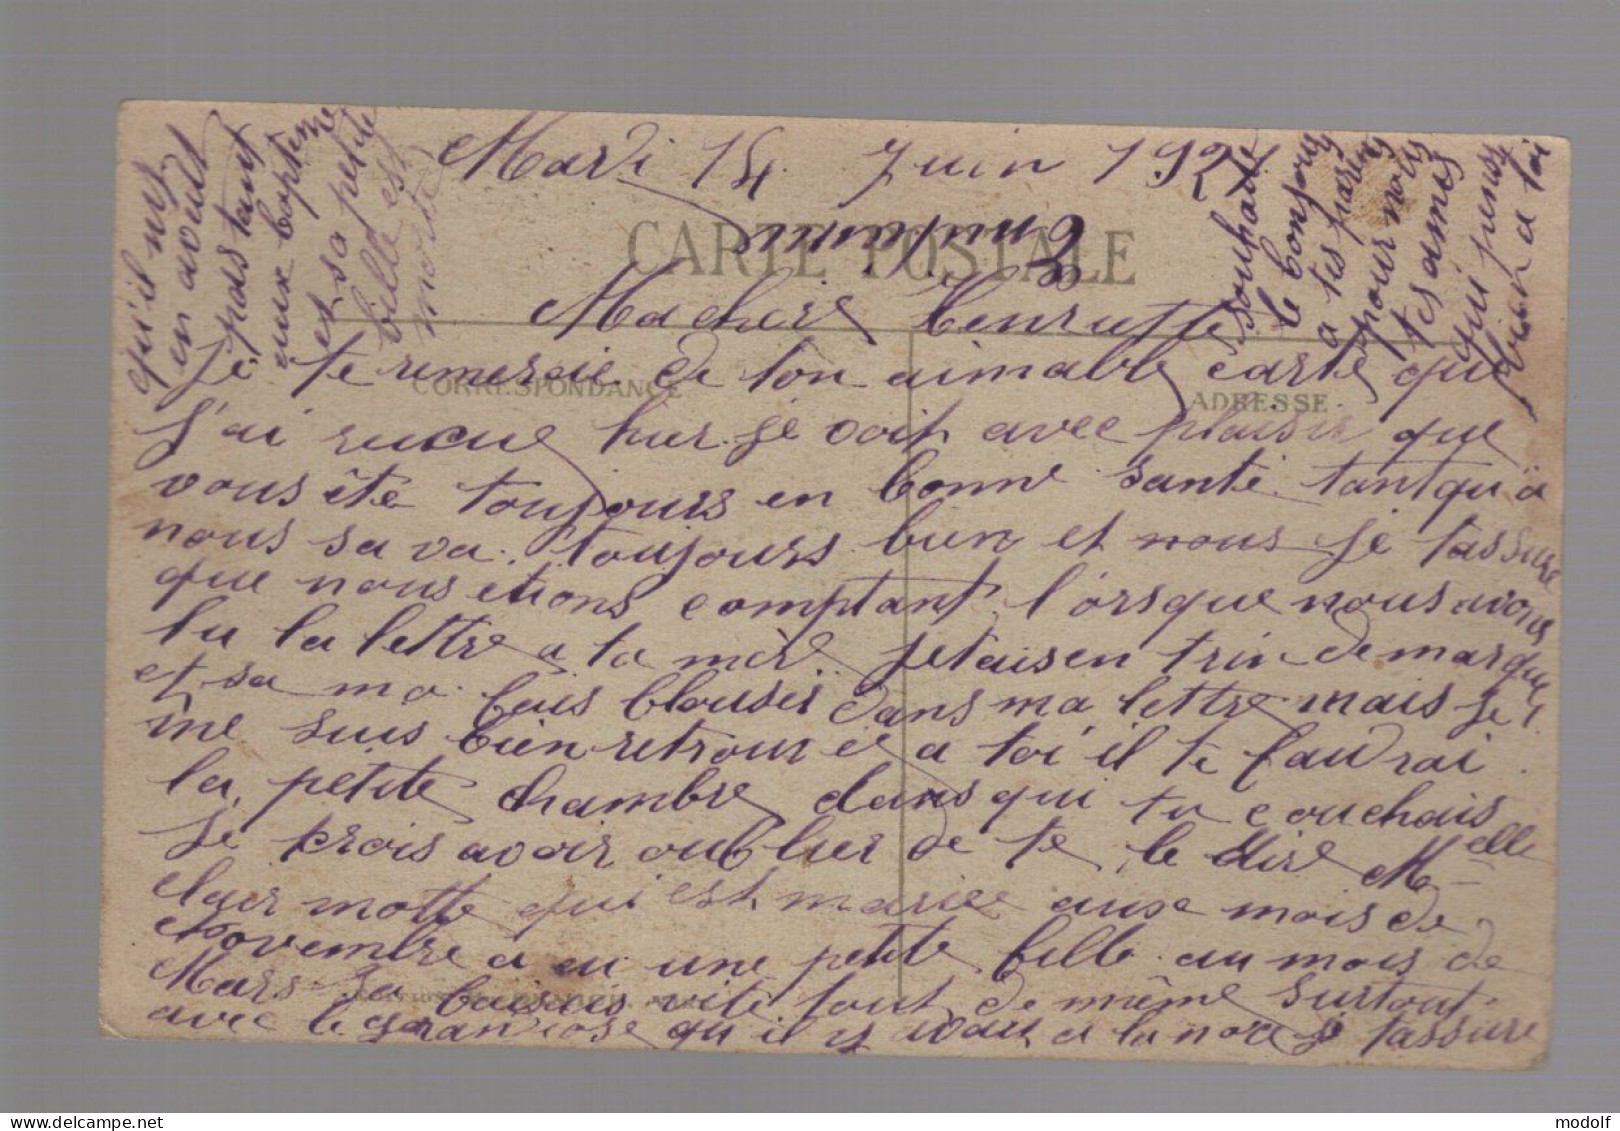 Mardi 14 Juin 1921
CARTE POSTALE
Ma chère Henriette
CORRESPONDANCE
ADRESSE
Je te remercie de ton aimable carte que
J'ai reueue hier. je voit avec plaisir que
vous ête toujours en bonne santé. tant qu'a
nous sa va toujours bien et nous je tassure
que nous etions comptant lorsque nous avons
lu la lettre a ta mère jetais en trin de marquer
et sa ma fais blouser dans ma lettre mais je
me suis bien retrouvée a toi il te faudrai
la petite chambre dans qui tu couchais
Je krois avoir oublier de te le dire Melle
Clair motte qui est mariée aux mois de
Novembre a eu une petite fille au mois de
Mars Sa vite tout de même surtout
avec le grandiose qu'il y avait a la noce je tassure
qu'il nest
en avait
pas tant
aux baptême
et sa petite
fille est
morte
souhaite
le bonjour
a tes parents
pour nous
tes amies
qui pense
bien a toi
modolf